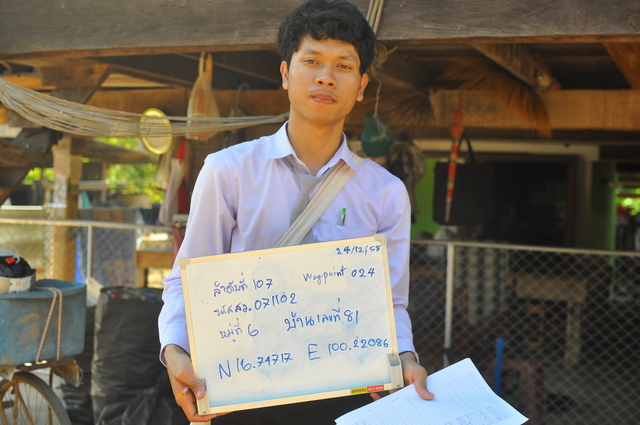 24/12/58
ลำดับที่ 107 Waypoint 024
รหัสสว. 071102
หมู่ที่ 6 บ้านเลขที่ 81
N 16.74717 E 100.22086